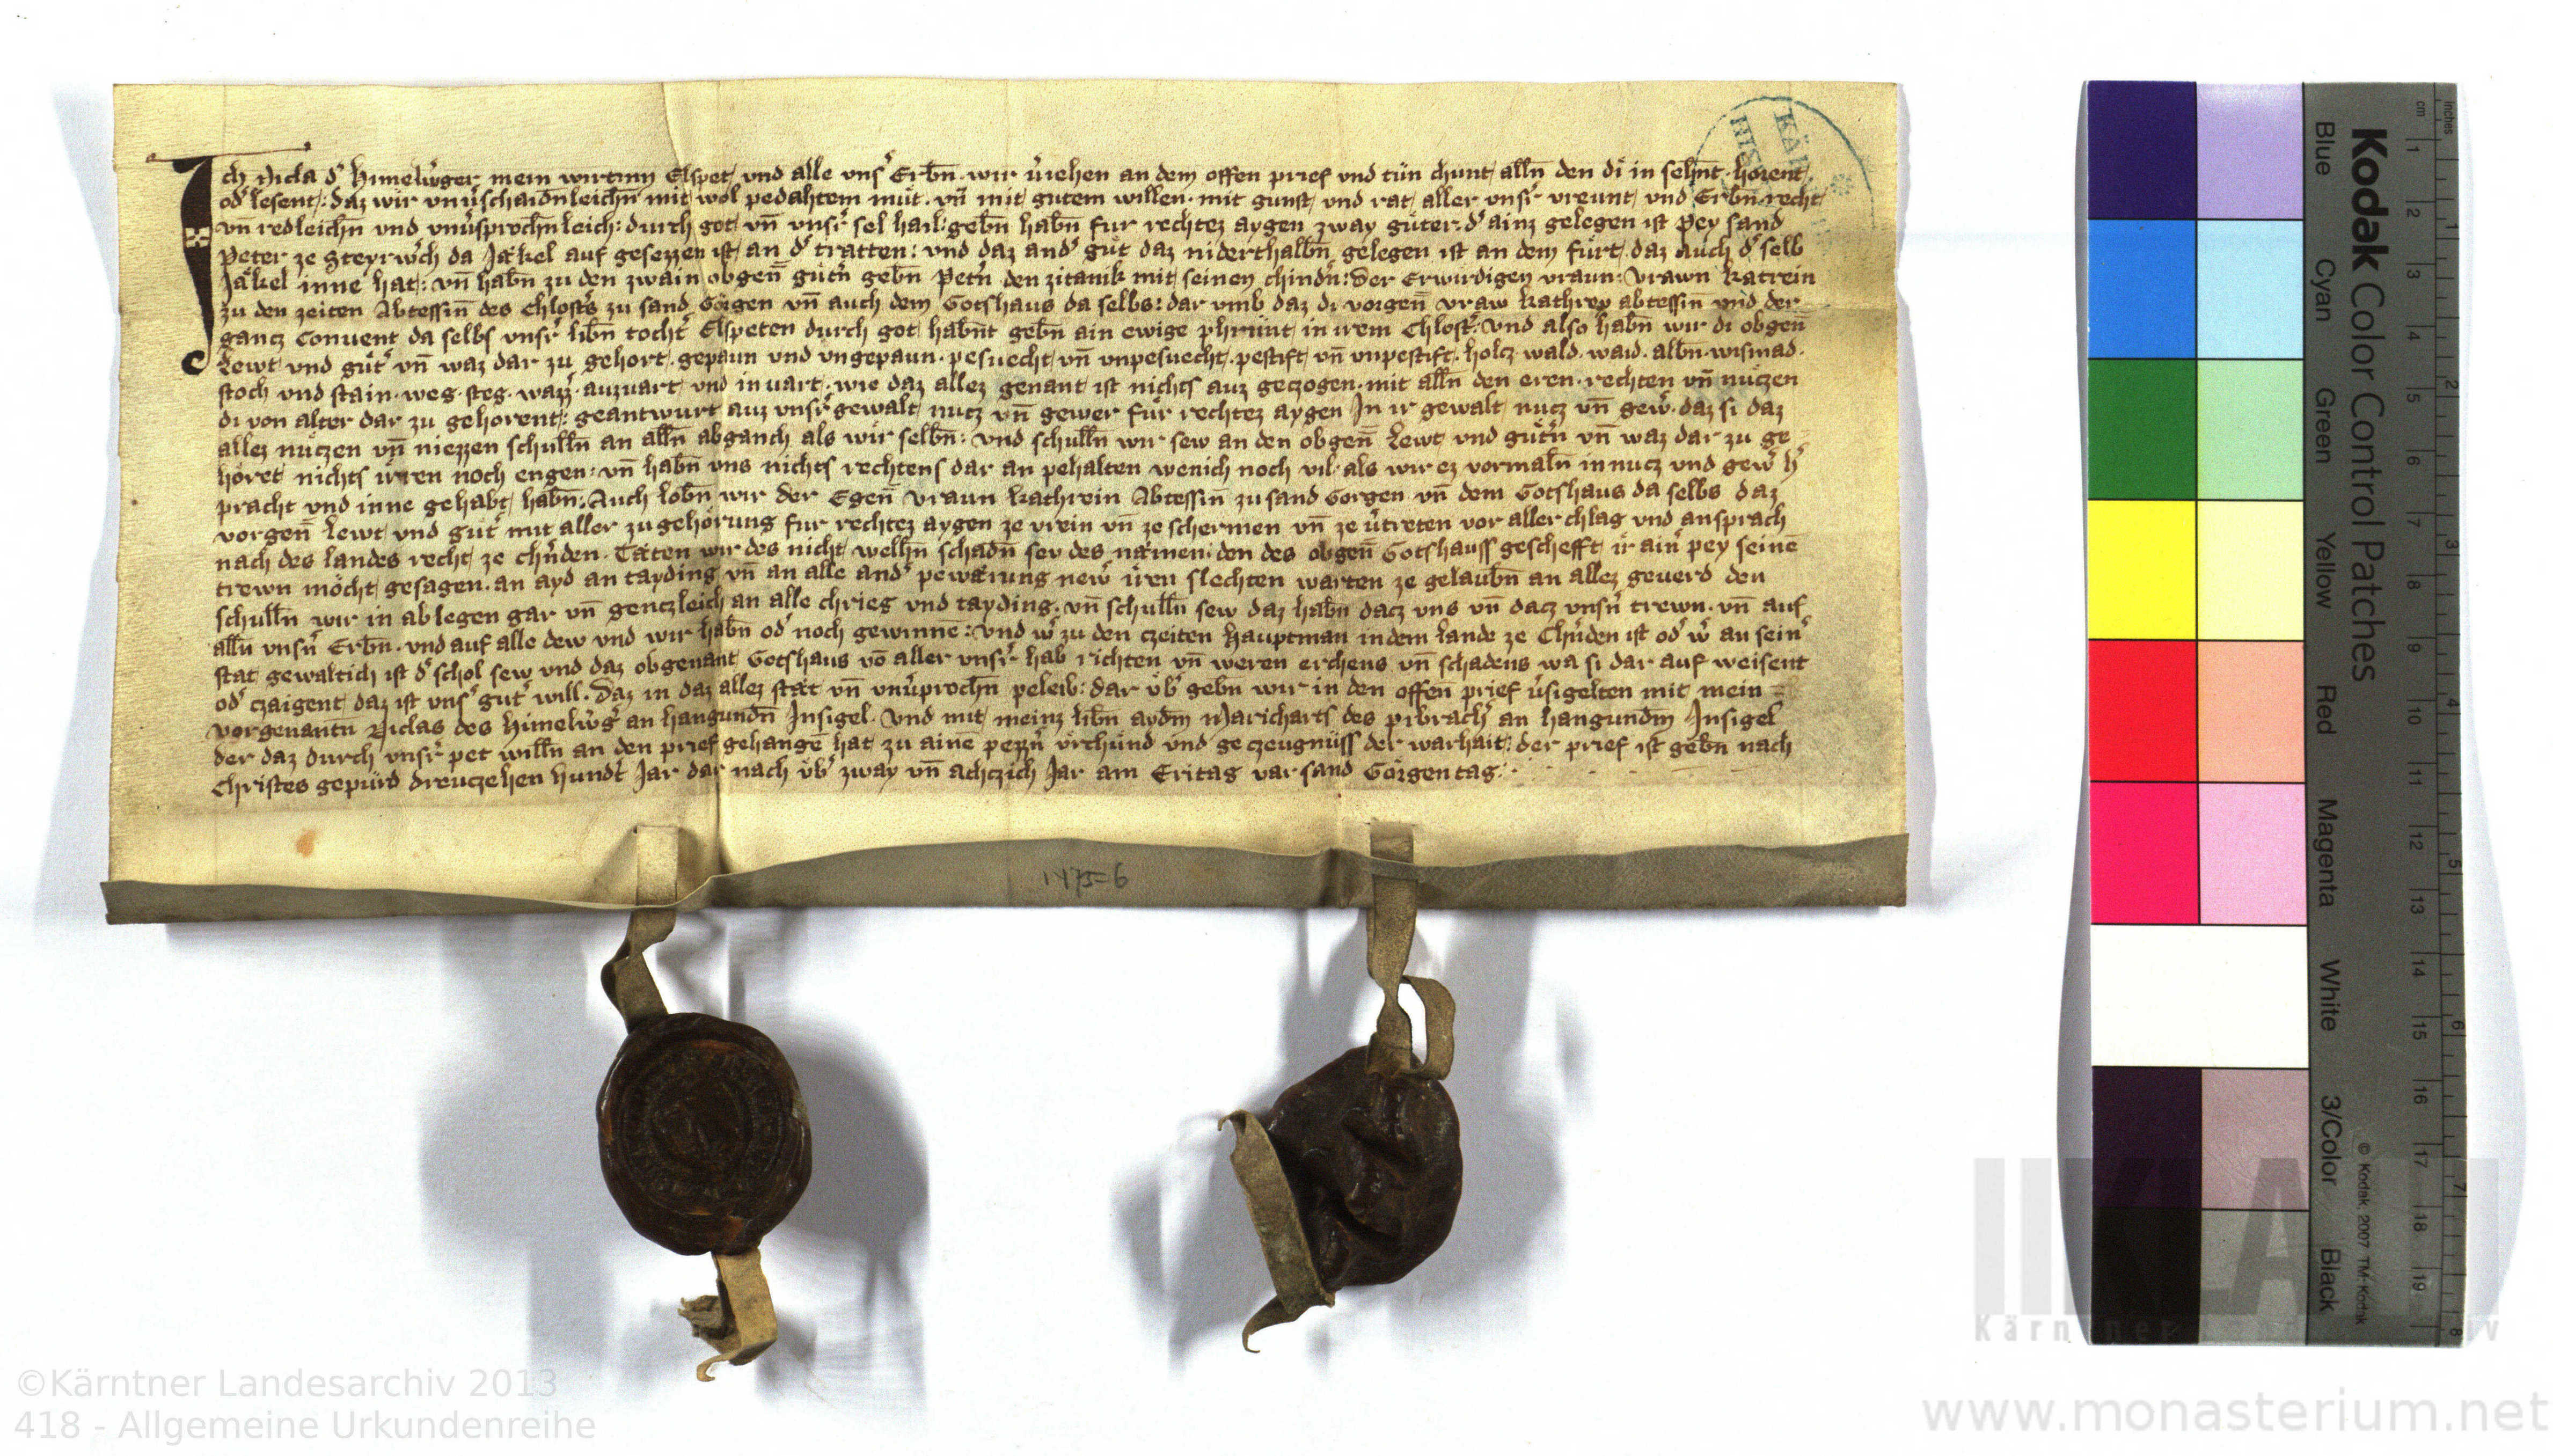 Ich Nicla d̾ Himelw̾ger mein wirtinn Elspet und alle uns̾ Erbn̄ wir v̾iehen an dem offen prief und tün chunt alln̄ den di in sehnt hörent
od̾ lesent: daz wir unv̾schaidnleichn̄ mit wol pedahtem müt. vn̄ mit gutem willen. mit gunst und rat aller uns̾r vreunt und Erbn̄ recht
vn̄ redleichn̄ und unv̾sprochn̄leich: durch got vn̄ uns̾r sel hail: gebn̄ habn̄ fur rechtez aygen zway güter. d̾ ainz gelegen ist pey sand
Peter ze Steyrw̾ch da Jäkel auf gesezzen ist an d̾ tratten: und daz and̾ güt daz niderthalbn̄ gelegen ist an dem fürt. daz auch d̾ selb
Jäkel inne hat: vn̄ habn̄ zu den zwain obgen̄ gütn̾ gebn̄ Petn̾ den zitanik mit seinen chindn̾: der Erwirdigen vraun: vrawn Katrein
zu den zeiten Abtessin̄ des Chlost̾s zu sand Görgen vn̄ auch dem Gotshaus da selbs: dar umb daz di vorgen̄ vraw kathrey abtessin̄ und der
gancz Convent da selbs uns̾r libn̄ tocht̾ Elspeten durch got habnt gebn̄ ain ewige phrünt in irem Chlost̾: und also habn̄ wir di obgen̄
Lewt und güt̾ vn̄ waz dar zu gehort. gepaun und ungepaun. pesuecht vn̄ unpesuecht. pestift vn̄ unpestift. holcz. wald. waid. albn̄. wismad.
stoch und stain. weg. steg. wazz̾. auzvart und invart. wie daz allez genant ist nichts auz geczogen. mit alln̄ den eren. rechten vn̄ nüczen
di von alter dar zu gehorent: geantwurt auz uns̾r gewalt nucz vn̄ gewer für rechtez aygen In ir gewalt nucz vn̄ gew̾. daz si daz
allez nüczen vn̄ niezzen schulln̄ an alln̄ abganch als wir selbn̄: und schulln̄ wir sew an den obgen̄ Lewt und gütn̾ vn̄ waz dar zu ge
höret nichts irren noch engen: vn̄ habn̄ uns nichts rechtens dar an pehalten wenich noch vil. als wir ez vormaln̄ in nucz und gew̾ h̾
pracht und inne gehabt habn̄: Auch lobn̄ wir der Egen̄ vraun Kathrein Abtessin̄ zu sand Gorgen vn̄ dem Gotshaus da selbs daz
vorgen̄ Lewt und güt̾ mit aller zugehörung fur rechtez aygen ze vrein vn̄ ze schermen vn̄ ze v̾treten vor aller chlag und ansprach
nach des landes recht ze chn̾den. Täten wir des nicht welhn̄ schadn̄ sev des nämen. den des obgen̄ Gotshauss geschefft ir ain̾ pey seinē
trewn möcht gesagen. an ayd an tayding vn̄ an alle and̾ pewärung new̾ iren slechten warten ze gelaubn̄ an allez geverd den
schulln̄ wir in ablegen gar vn̄ genczleich an alle chrieg und tayding. vn̄ schulln̄ sew daz habn̄ dacz uns vn̄ dacz unsn̾ trewn. vn̄ auf
alln̄ unsn̾ Erbn̄. und auf alle dew und wir habn̄ od̾ noch gewinnē: und w̾ zu den czeiten Hauptman in dem Lande ze Chn̾den ist od̾ w̾ an sein̾
stat gewaltich ist d̾ schol sew und daz obgenant Gotshaus vō aller uns̾r hab richten vn̄ weren erchens vn̄ schadens wa si dar auf weisent
od̾ czaigent daz ist uns̾ gut̾ will. Daz in daz allez stät vn̄ unv̾prochn̄ peleib: dar üb̾ gebn̄ wir in den offen̄ prief v̾sigelten mit mein
vorgenantn̄ Niclas des Himelw̾g̾ an hangundn̄ Insigel. und mit meinz libn̄ aydm̄ Maricharts des pibrach̾ an hangundm̄ Insigel
der daz durch uns̾r pet willn̄ an den prief gehangē hat zu ainē pezzn̾ ürchünd und geczeugnüss der warhait: der prief ist gebn̄ nach
Christes gepürd dreuczehen hundt̾ Jar dar nach üb̾ zway vn̄ achczich Jar am Eritag var sand Görgen tag.
KÄR
HIS
1475=6
Kodak Color Control Patches
Blue Cyan Green Yellow Red Magenta White 3/Color Black
© Kodak, 2007 TM: Kodak
cm 1 2 3 4 5 6 7 8 9 10 11 12 13 14 15 16 17 18 19
inches 1 2 3 4 5 6 7 8
Kärntner
©Kärntner Landesarchiv 2013
418 - Allgemeine Urkundenreihe
www.monasterium.net